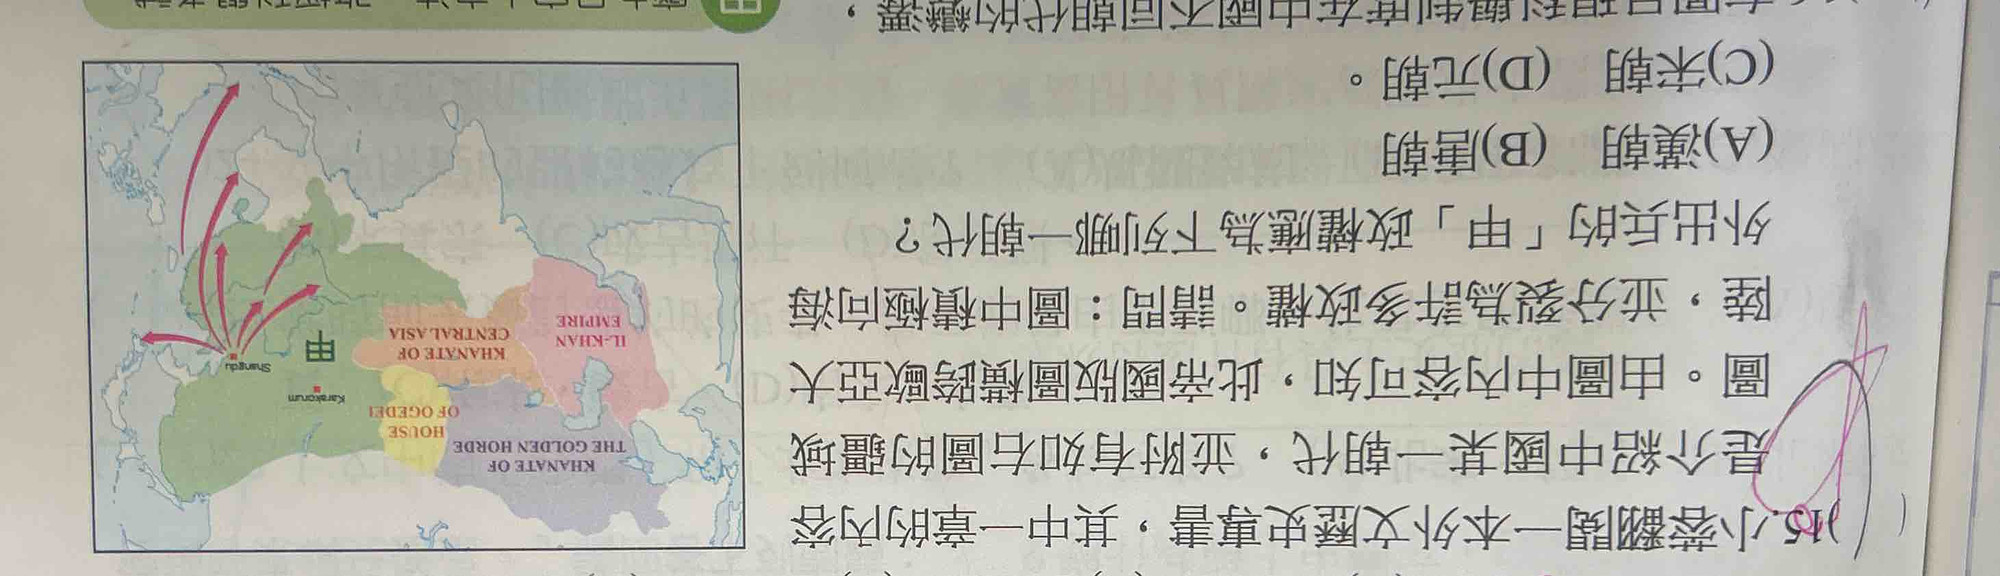 15.小蓉翻閱一本外文歷史專書，其中一章的內容
是介紹中國某一朝代，並附有如右圖的疆域
圖。由圖中內容可知，此帝國版圖橫跨歐亞大
陸，並分裂為許多政權。請問：圖中積極向海
外出兵的「甲」政權應為下列哪一朝代？
(A)漢朝 (B)唐朝
(C)宋朝 (D)元朝。
KHANATE OF
THE GOLDEN HORDE
HOUSE
OF OGEDEI
Karakorum
Shangdu
甲
IL-KHAN
EMPIRE
KHANATE OF
CENTRAL ASIA
在中國不同朝代的變遷，